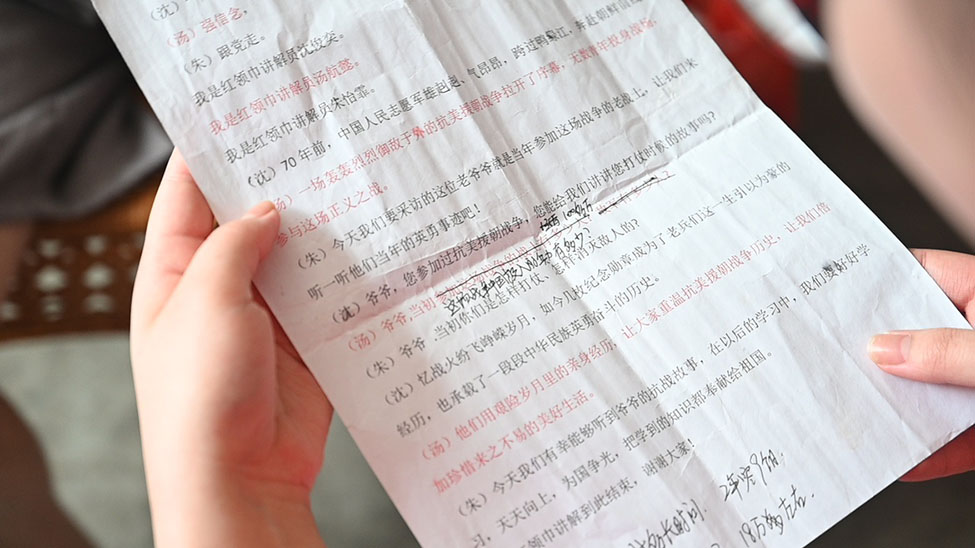 (沈)
(汤) 强信念,
(朱) 跟党走。
我是红领巾讲解员沈峻奕。
我是红领巾讲解员汤皖懿。
我是红领巾讲解员朱怡霏。
(沈) 70年前, 中国人民志愿军雄赳赳、气昂昂, 跨过鸭绿江, 奔赴朝鲜前线
一场轰轰烈烈御敌于外的抗美援朝战争拉开了序幕, 无数青年投身战场,
参与这场正义之战。
(朱) 今天我们要采访的这位老爷爷就是当年参加这场战争的老战士, 让我们来
听一听他们当年的英勇事迹吧!
(沈) 爷爷, 您参加过抗美援朝战争, 您能给我们讲讲您打仗时候的故事吗?
(汤) 爷爷, 当初
(朱) 爷爷, 当初你们是怎样打仗、怎样消灭敌人的?
(沈) 忆战火纷飞峥嵘岁月, 如今几枚纪念勋章成为了老兵们这一生引以为豪的
经历, 也承载了一段段中华民族英勇奋斗的历史。
(汤) 他们用艰险岁月里的亲身经历, 让大家重温抗美援朝战争历史, 让我们倍
加珍惜来之不易的美好生活。
(朱) 今天我们有幸能够听到爷爷的抗战故事, 在以后的学习中, 我们要好好学
习, 天天向上, 为国争光, 把学到的知识都奉献给祖国。
领巾讲解到此结束, 谢谢大家!
2年零9个月.
18万多左右.